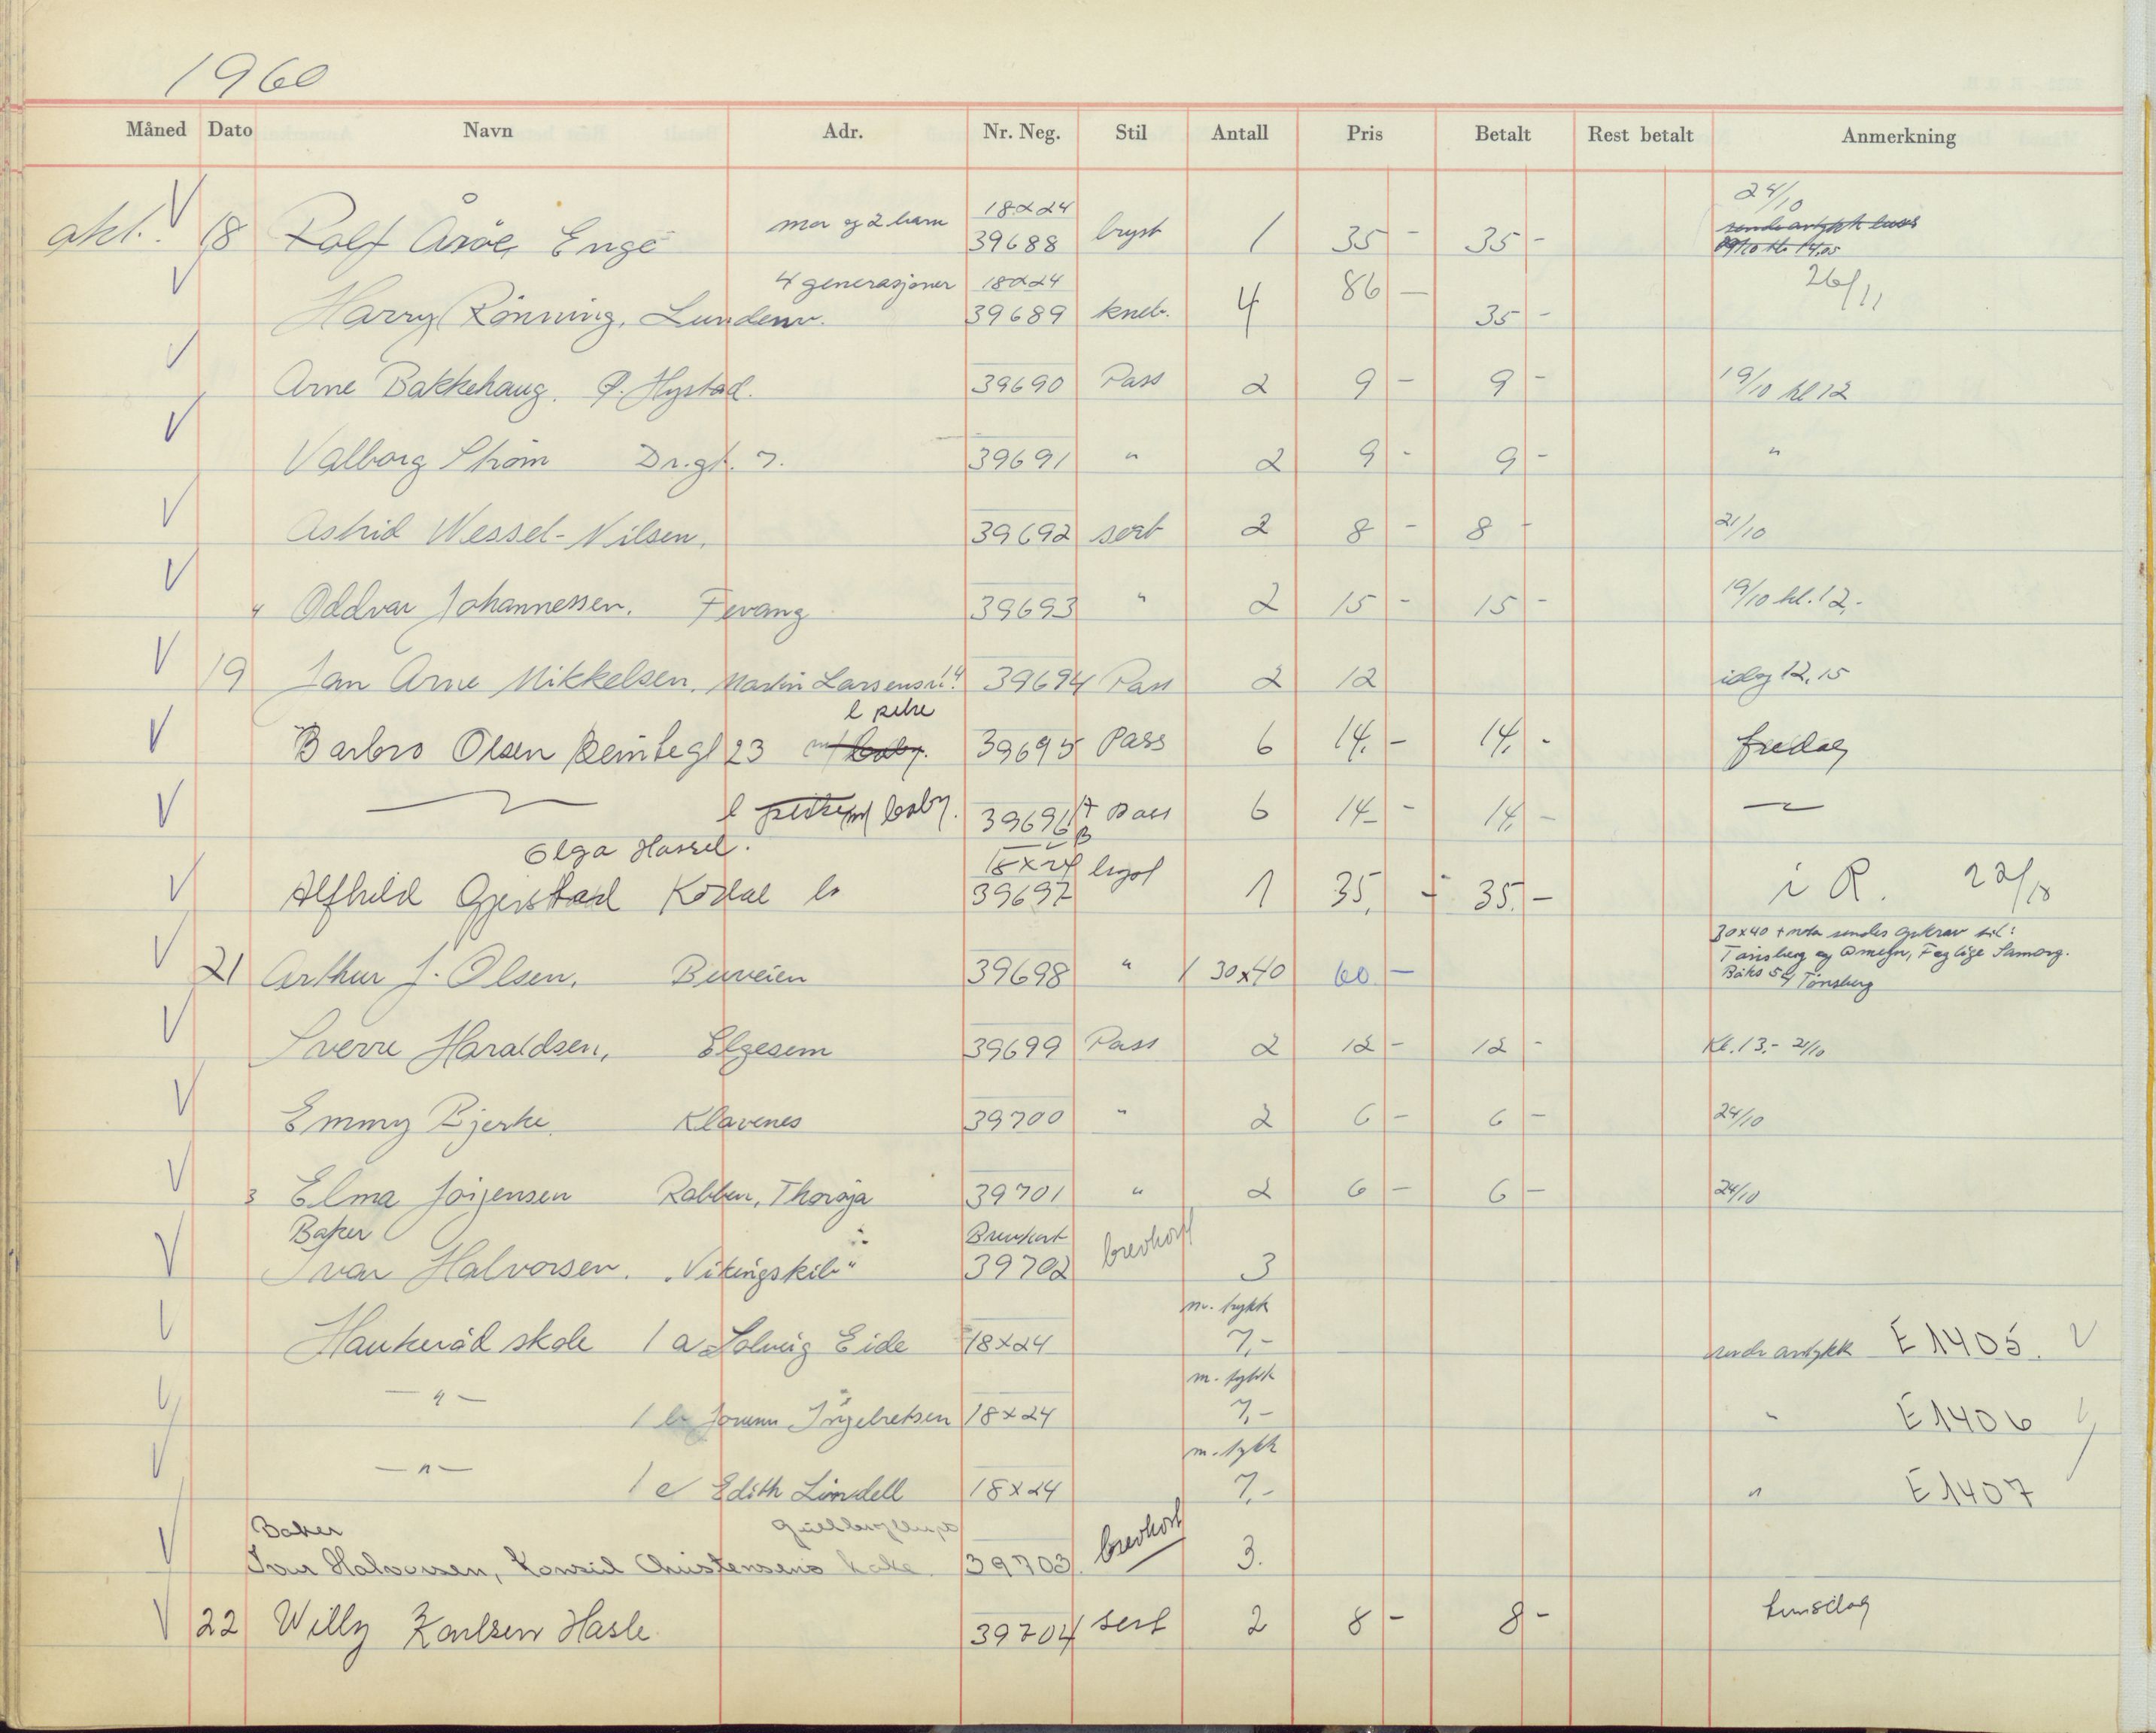 1960
Måned Dato Navn Adr. Nr. Neg. Stil Antall Pris Betalt Rest betalt Anmerkning
18x24 24/10
okt. 18 Rolf Åröe, Enge mor og 2 barn 39688 bryst 1 35 - 35 -
4 generasjoner 18x24 26/11
Harry Rönning, Lundenv. 39689 kneb. 4 86 - 35 -
Arne Bakkehaug. P. Hystad. 39690 Pass 2 9 - 9 - 19/10 kl 12
Valborg Strøm Dr.gt. 7. 39691 " 2 9 - 9 - "
Astrid Wessel-Nilsen. 39692 sert 2 8 - 8 - 21/10
Oddvar Johannessen. Fevang 39693 " 2 15 - 15 - 19/10 kl. 12.-
19 Jan Arne Mikkelsen. Martin Larsensv. 39694 Pass 2 12 idag 12.15
Barbro Olsen 23 39695 Pass 6 14.- 14.- fredag
baby. 39696 A B Pass 6 14 - 14 -
Olga Hassel. 18x24
Alfhild Gjerstad Kodal 39697 1 35, - 35.- i R. 22/10
30x40 + nota sendes
21 Arthur J. Olsen. Buveien 39698 " 1 30x40 60 - Tønsberg og Omegn, Faglige Samorg.
Boks 54 Tönsberg
Sverre Haraldsen, Elgesem 39699 Pass 2 12 - 12 - Kl. 13.- 21/10
Emmy Bjerke Klavenes 39700 " 2 6 - 6 - 24/10
3 Elma Jörgensen Rabben, Thorøja 39701 " 2 6 - 6 - 24/10
Baker
Ivar Halvorsen. "Vikingskib" 39702 brevkort 3
m. trykk
Haukeröd skole 1 a Solveig Eide 18x24 7,- E 1405.
m. trykk
- " - 1 b Ingebretsen 18x24 7,- " E 1406
m. trykk
- " - 1 c Edith Lindell 18x24 7,- " E 1407
Baker
Ivar Halvorsen, Konsul Christensens kake 39703 brevkort 3.
22 Willy Karlsen Hasle 39704 sert 2 8 - 8 -